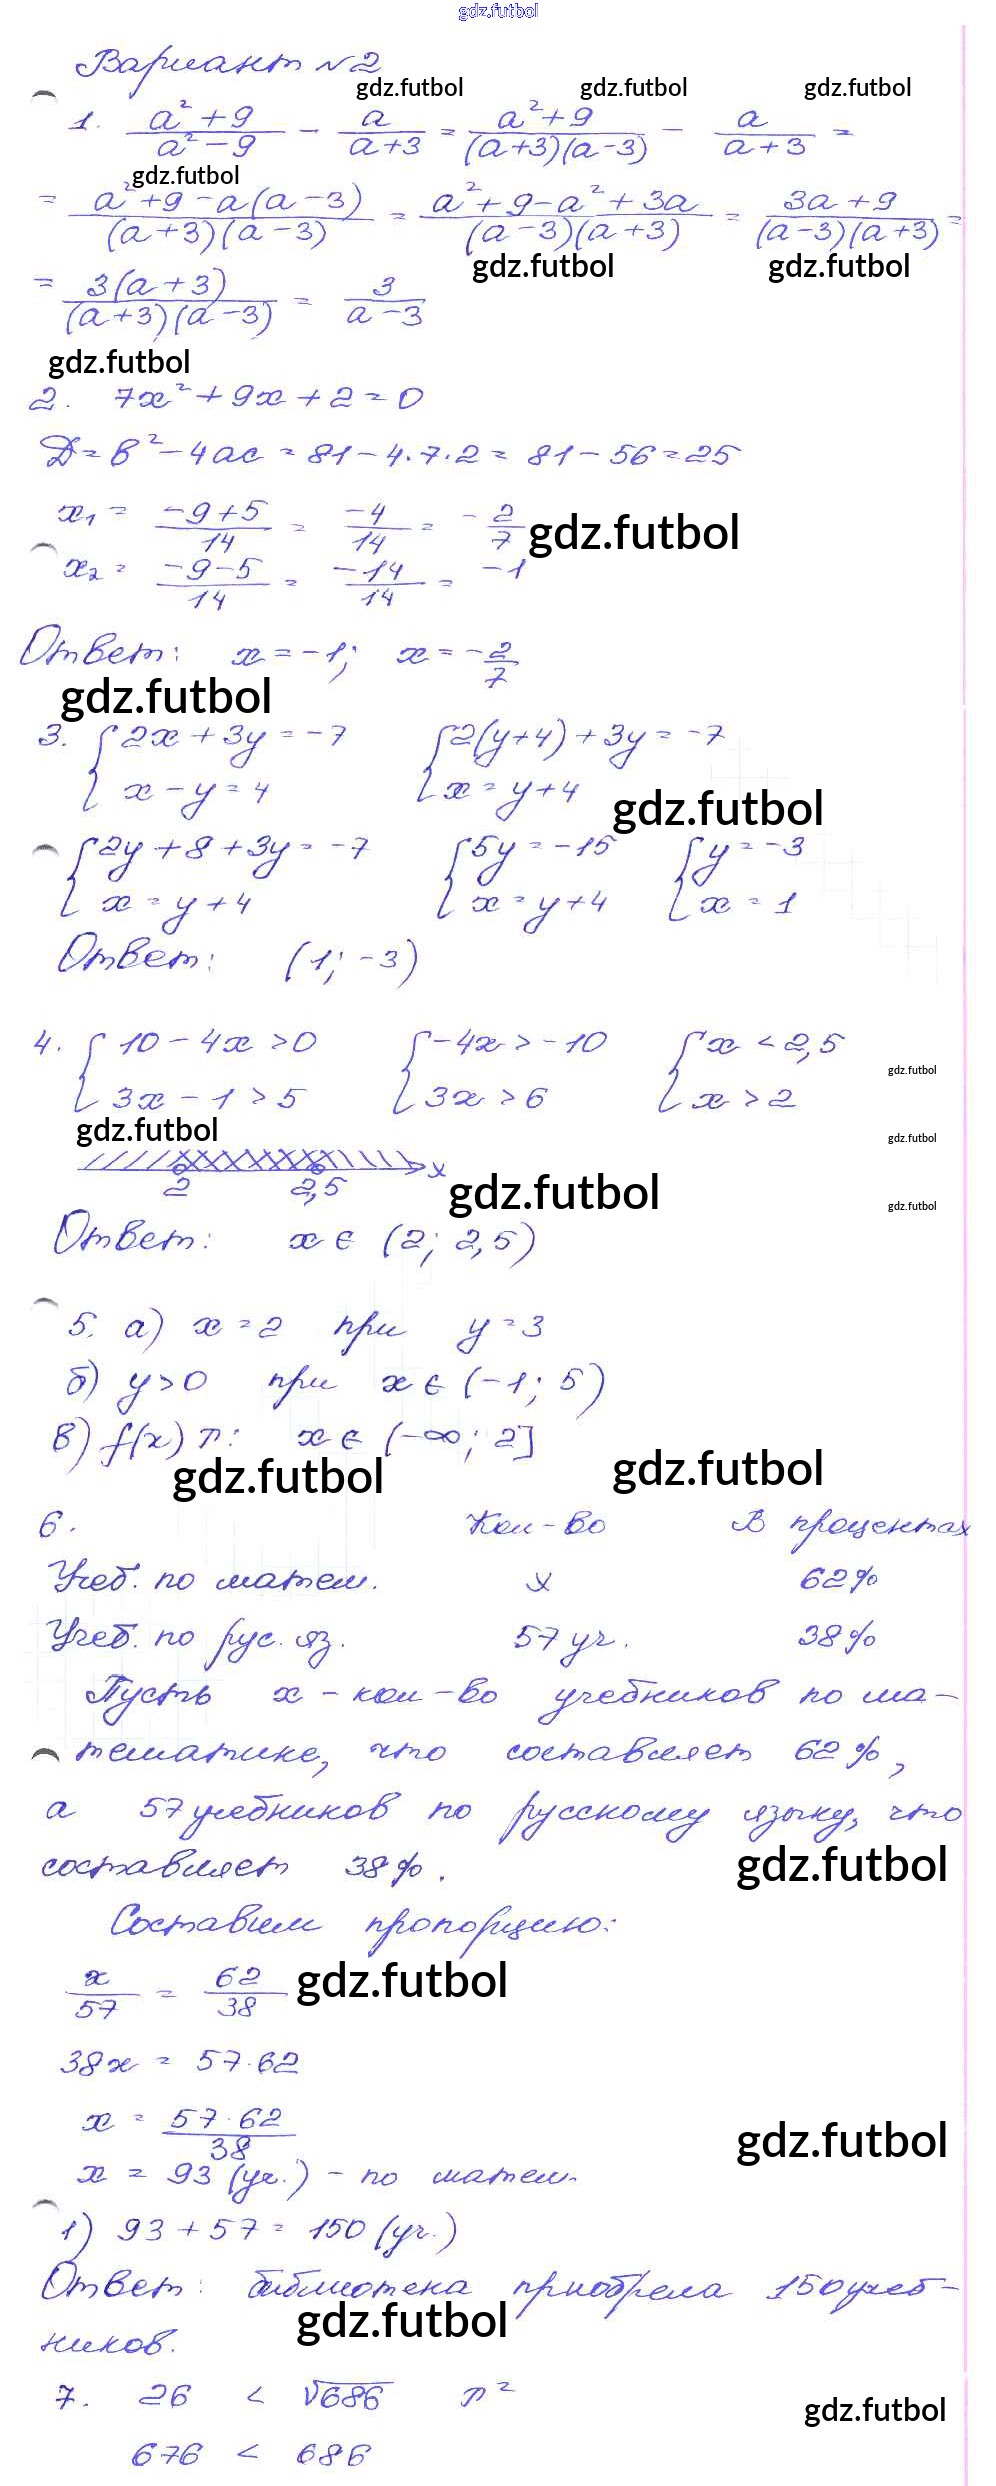 gdz.futbol
Вариант №2
gdz.futbol gdz.futbol gdz.futbol
1. (a²+9)/(a²-9) - a/(a+3) = (a²+9)/((a+3)(a-3)) - a/(a+3) =
gdz.futbol
= (a²+9-a(a-3))/((a+3)(a-3)) = (a²+9-a²+3a)/((a-3)(a+3)) = (3a+9)/((a-3)(a+3)) =
gdz.futbol gdz.futbol
= 3(a+3)/((a+3)(a-3)) = 3/(a-3)
gdz.futbol
2. 7x²+9x+2=0
Д=в²-4ac=81-4·7·2=81-56=25
x₁ = (-9+5)/14 = -4/14 = -2/7 gdz.futbol
x₂ = (-9-5)/14 = -14/14 = -1
Ответ: x=-1; x=-2/7
gdz.futbol
3. { 2x+3y=-7 { 2(y+4)+3y=-7
x-y=4 x=y+4 gdz.futbol
{ 2y+8+3y=-7 { 5y=-15 { y=-3
x=y+4 x=y+4 x=1
Ответ: (1; -3)
4. { 10-4x>0 { -4x>-10 { x<2,5
gdz.futbol
3x-1>5 3x>6 x>2
gdz.futbol gdz.futbol
x
2 2,5 gdz.futbol gdz.futbol
Ответ: x∈(2; 2,5)
5. а) x=2 при y=3
б) y>0 при x∈(-1; 5)
в) f(x)↗: x∈(-∞; 2]
gdz.futbol gdz.futbol
6. Кол-во В процентах
Учеб. по матем. x 62%
Учеб. по рус. яз. 57 уч. 38%
Пусть x-кол-во учебников по ма-
тематике, что составляет 62%,
а 57 учебников по русскому языку, что
составляет 38%. gdz.futbol
Составим пропорцию:
x/57 = 62/38 gdz.futbol
38x = 57·62
x = 57·62/38 gdz.futbol
x = 93 (уч.) - по матем.
1) 93+57=150 (уч.)
Ответ: библиотека приобрела 150 учеб-
ников. gdz.futbol
7. 26 < √686 ↗²
gdz.futbol
676 < 686